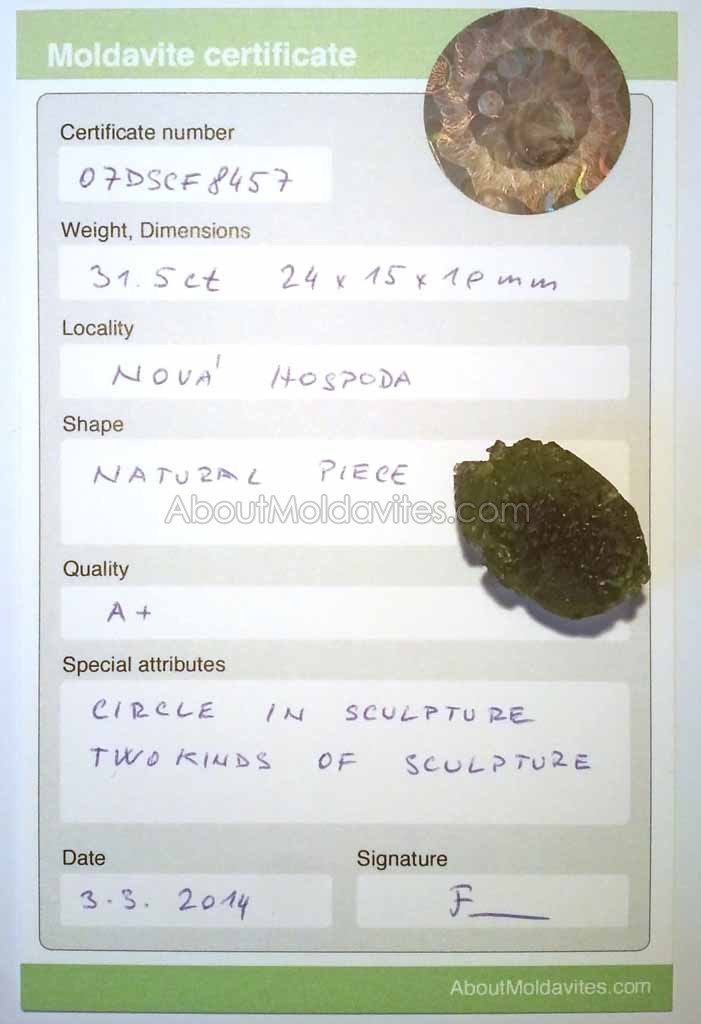 Moldavite certificate
Certificate number
07DSCF8457
Weight, Dimensions
31.5ct 24 x 15 x 10 mm
Locality
NOVÁ HOSPODA
Shape
NATURAL PIECE
AboutMoldavites.com
Quality
A+
Special attributes
CIRCLE IN SCULPTURE
TWO KINDS OF SCULPTURE
Date
3.3. 2014
Signature
F
AboutMoldavites.com